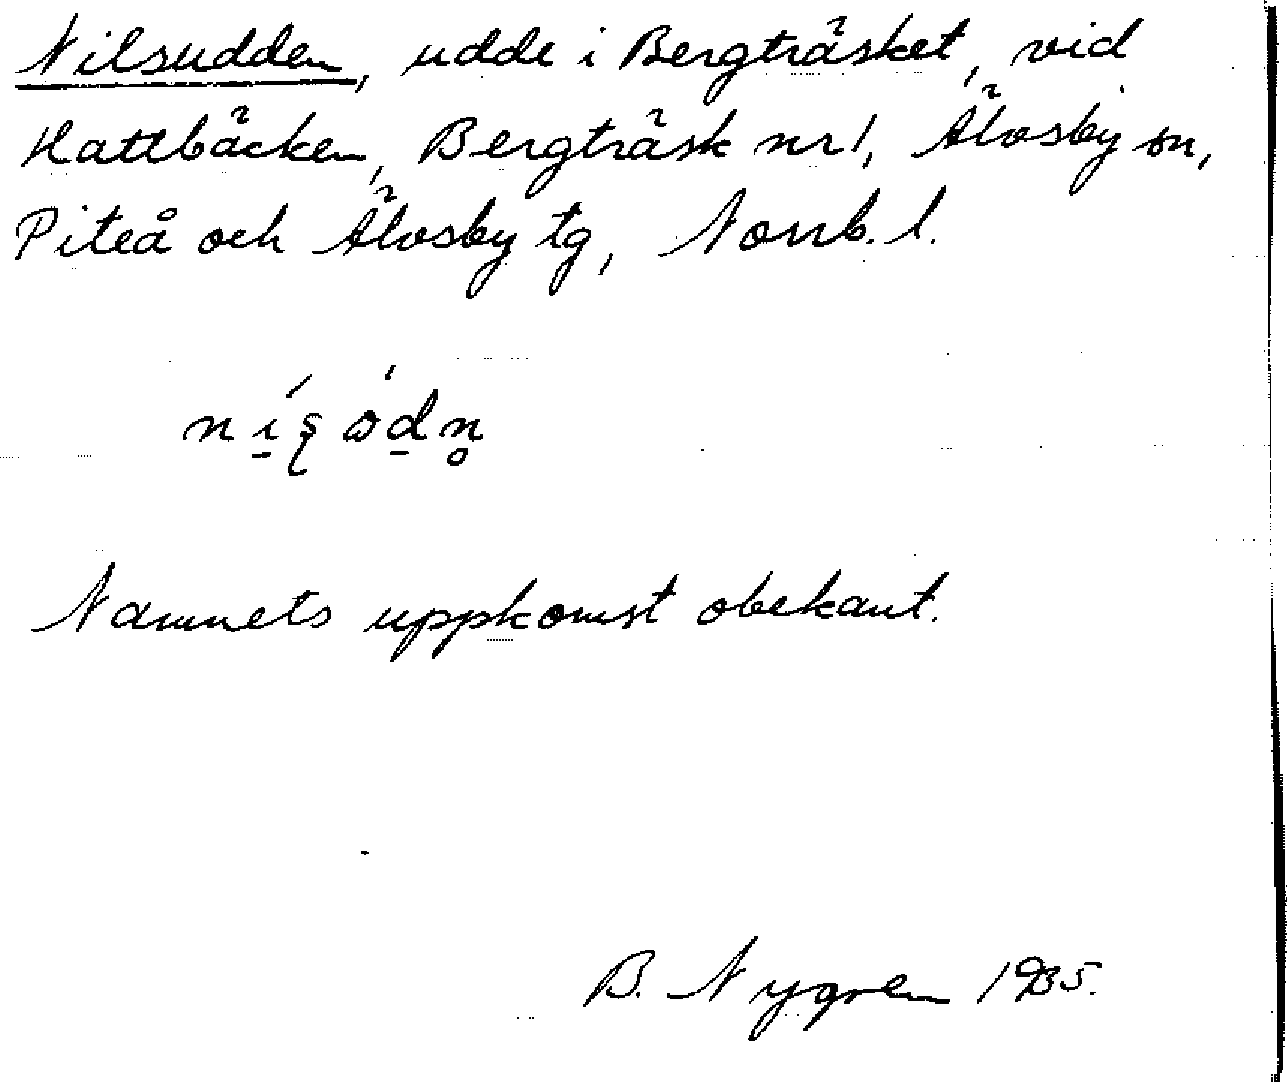 Nilsudden, udde i Bergträsket, vid
Hattbäcken, Bergträsk nr 1, Älvsby sn,
Piteå och Älvsby tg, Norrb. l.
Namnets uppkomst obekant.
B. Nygren 1935.